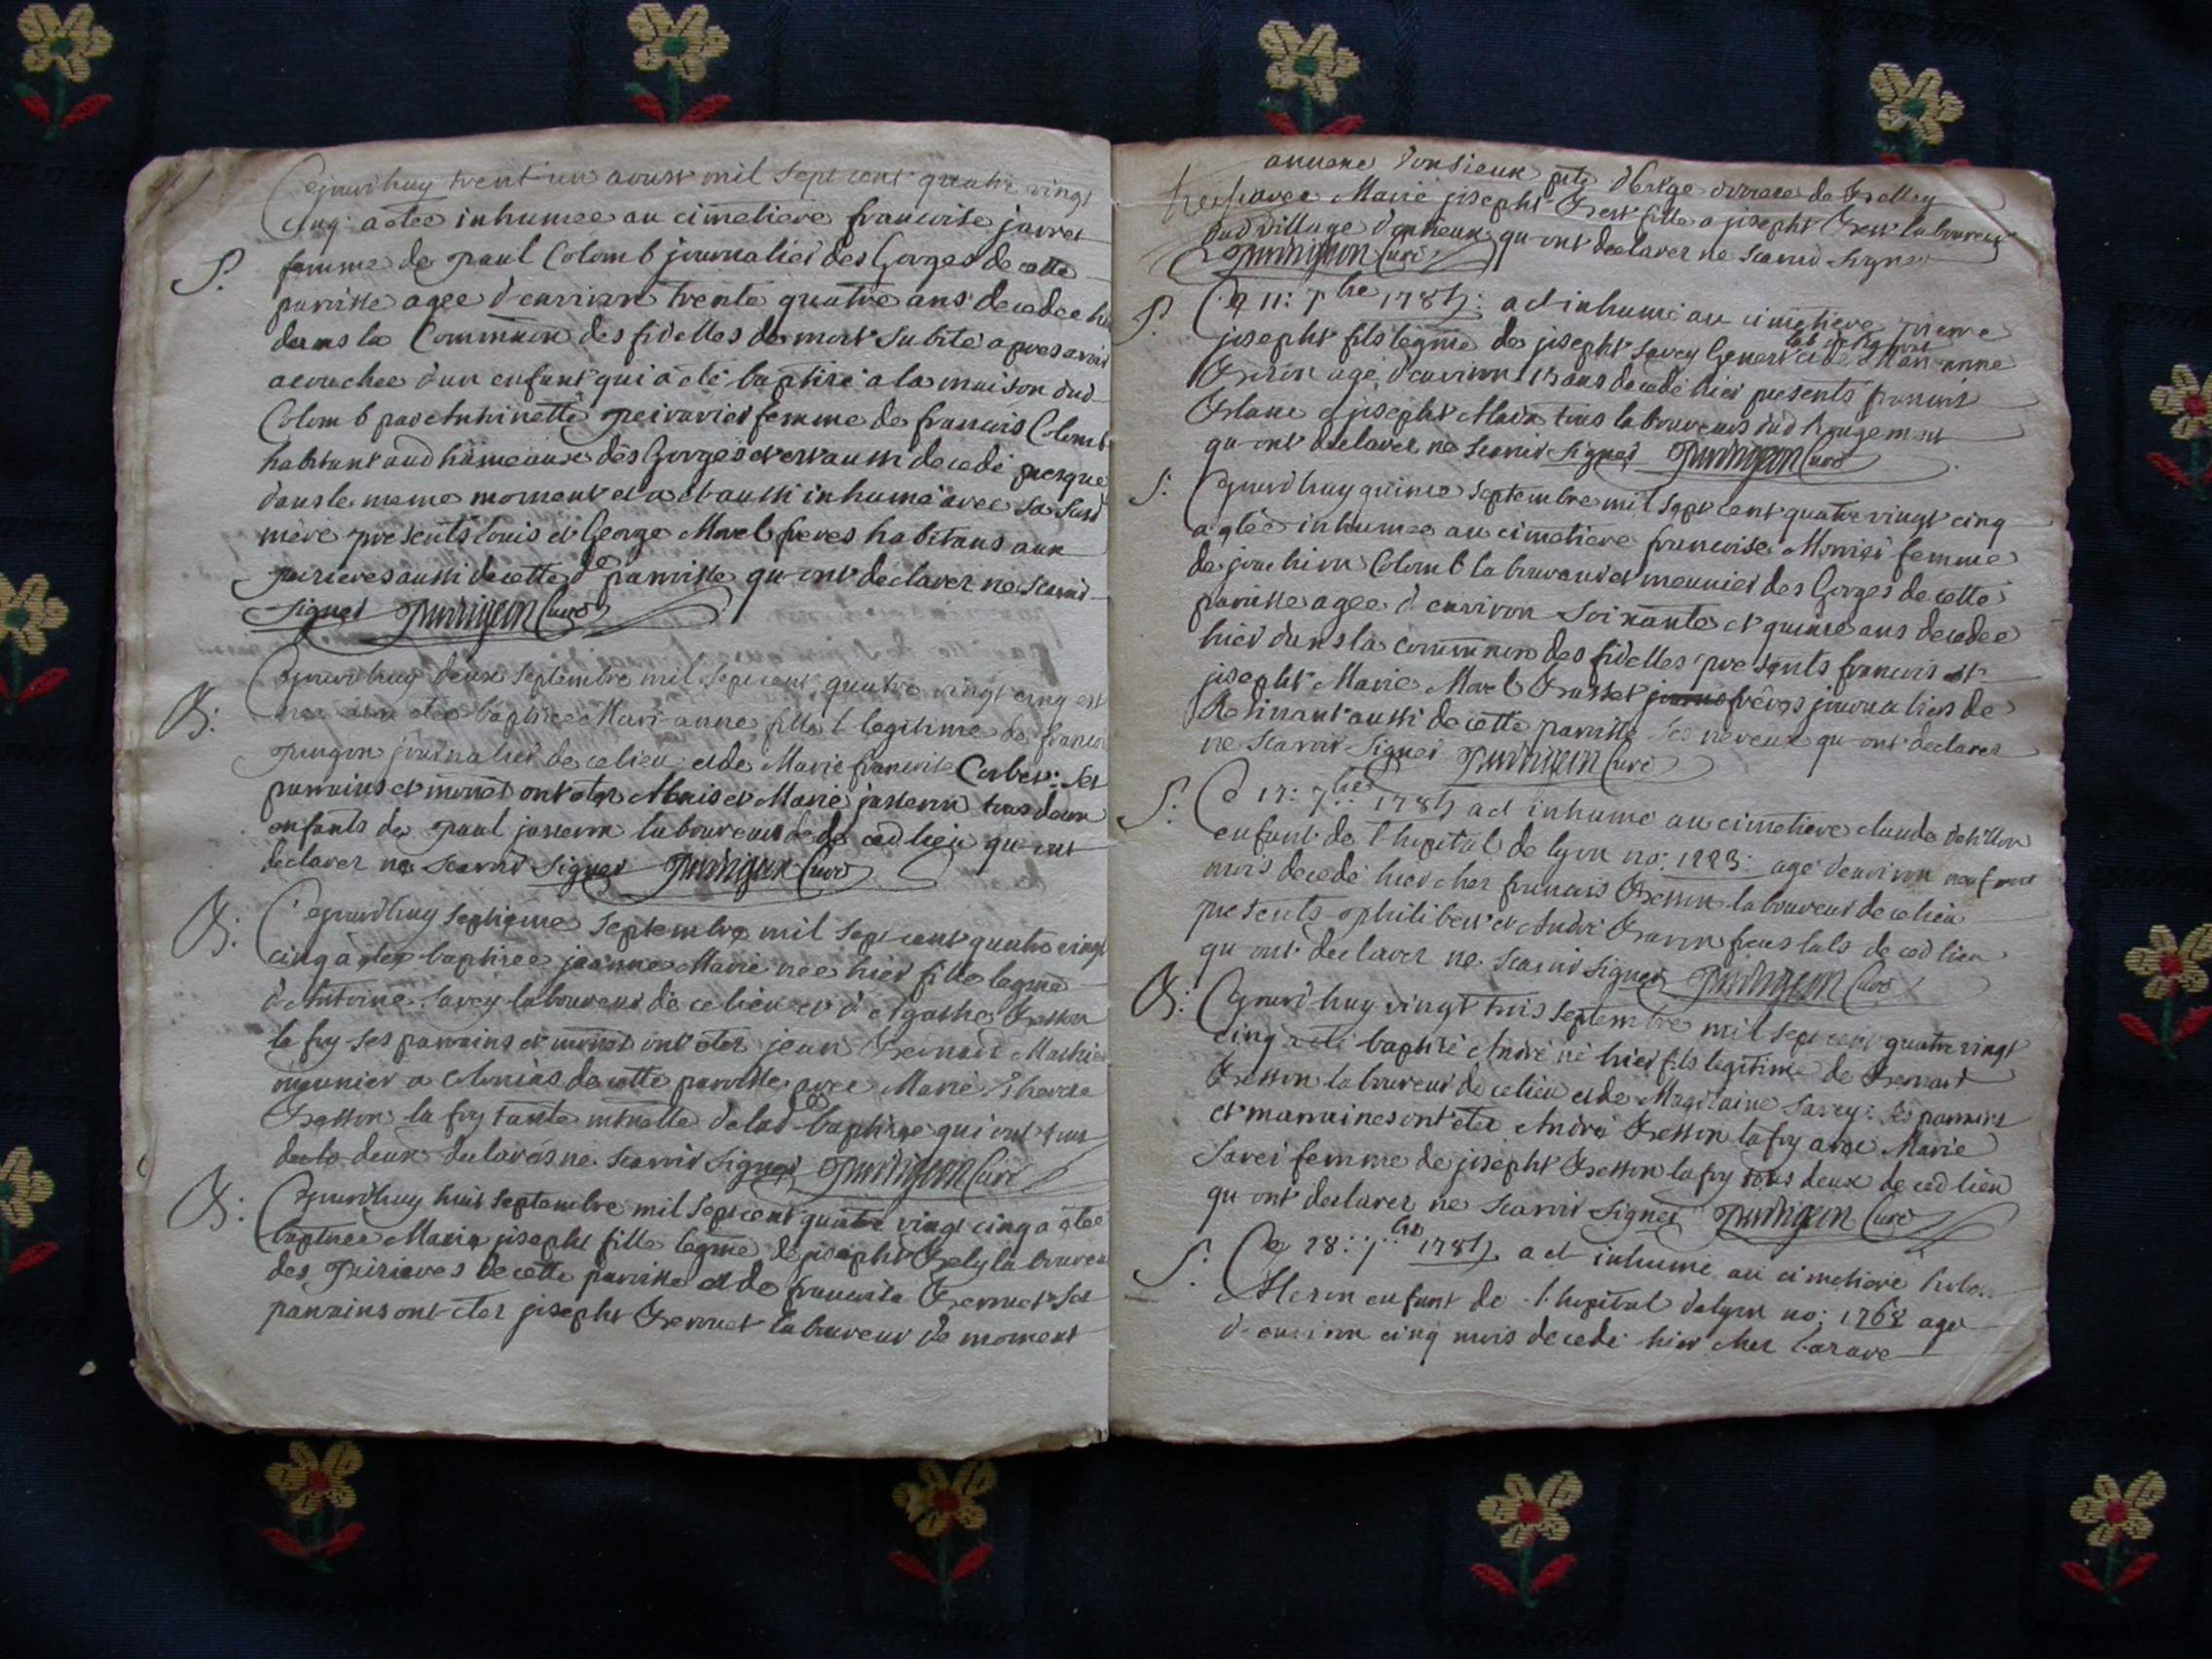 Cejourdhuy trent un aoust mil sept cent quatre vingt
cinq a etée inhumée au cimetiere francoise javret
S. femme de paul Colomb journalier des Gorges de cette
paroisse agée d'environ trente quatre ans decedee hier
dans la Communion des fidelles de mort subite apres avoir
acouchee d'un enfant qui a été baptisé a la maison dud
Colomb par Anthinette peiravier femme de francois Colomb
habitant aud hameaux des Gorges et est aussi decedé presque
dans le meme moment et a et aussi inhumé avec sa susd
mere presents louis et George Morel freres habitans aux
purieres aussi de cette de paroisse qu ont declarer ne scavoir
signer purrigeon Curé
Cejourdhuy deux septembre mil sept cent quatre vingt cinq est
B. etee baptisee Mari anne fille legitime de francois
journalier de ce lieu et de Marie francoise Corbet: ses
parrains et ont eter et Marie josserin tous deux
enfants de paul josserin laboureur de ced lieu qu ont
declarer ne scavoir signer purrigeon Curé
B: Cejourdhuy septieme septembre mil sept cent quatre vingt
cinq a eter baptisee jeanne Marie née hier fille legme
d'Antoine savey laboureur de ce lieu et d'Agathe Besson
la foy ses parrains et ont eter jean Bernard Mathieu
meunier a de cette paroisse avec Marie Therese
Besson la foy tante de lad baptisee qui ont tous
les deux declarés ne scavoir signer purrigeon Curé
B: Cejourdhuy huit septembre mil sept cent quatre vingt cinq a etee
baptisee Marie joseph fille legme de joseph Bely laboureur
des purieres de cette paroisse et de francoise Bernet ses
parrains ont eter joseph Bernet laboureur de moment
d'onsieux
avec Marie joseph fille a joseph laboureur
dud village d'onsieux qu ont declarer ne scavoir signer
purrigeon Curé
S. Ce 11: 7bre 1785: a et inhumé au cimetiere pierre
joseph fils legme de joseph savey et de Mari anne
agé d'environ 13 ans decedé hier presents francois
Blanc et joseph tous laboureurs dud Rougemont
qu ont declarer ne scavoir signer purrigeon Curé
S. Cejourdhuy quinze septembre mil sept cent quatre vingt cinq
a etée inhumee au cimetiere francoise femme
de joachim Colomb laboureur et meunier des Gorges de cette
paroisse agee d'environ soixante et quinze ans decedee
hier dans la communion des fidelles presents francois et
joseph Marie Morel Brasset freres journaliers de
aussi de cette paroisse ses neveux qu ont declarer
ne scavoir signer purrigeon Curé
S. Ce 17: 7bre 1785 a et inhumé au cimetiere claude
enfant de l'hopital de lyon no: 1223: agé d'environ neuf
mois decedé hier cher francois Besson laboureur de ce lieu
presents philibert et André freres de ced lieu
qu ont declarer ne scavoir signer purrigeon Curé
B: Cejourdhuy vingt trois septembre mil sept cent quatre vingt
cinq a eté baptisé André né hier fils legitime de Bernard
Besson laboureur de ce lieu et de Magdelaine savey: ses parrains
et marraines ont eter André Besson la foy avec Marie
savei femme de joseph Besson la foy tous deux de ced lieu
qu ont declarer ne scavoir signer purrigeon Curé
S. Ce 28: 7bre 1785 a et inhumé au cimetiere
enfant de l'hopital de lyon no: 1768 agé
d'environ cinq mois decedé hier cher